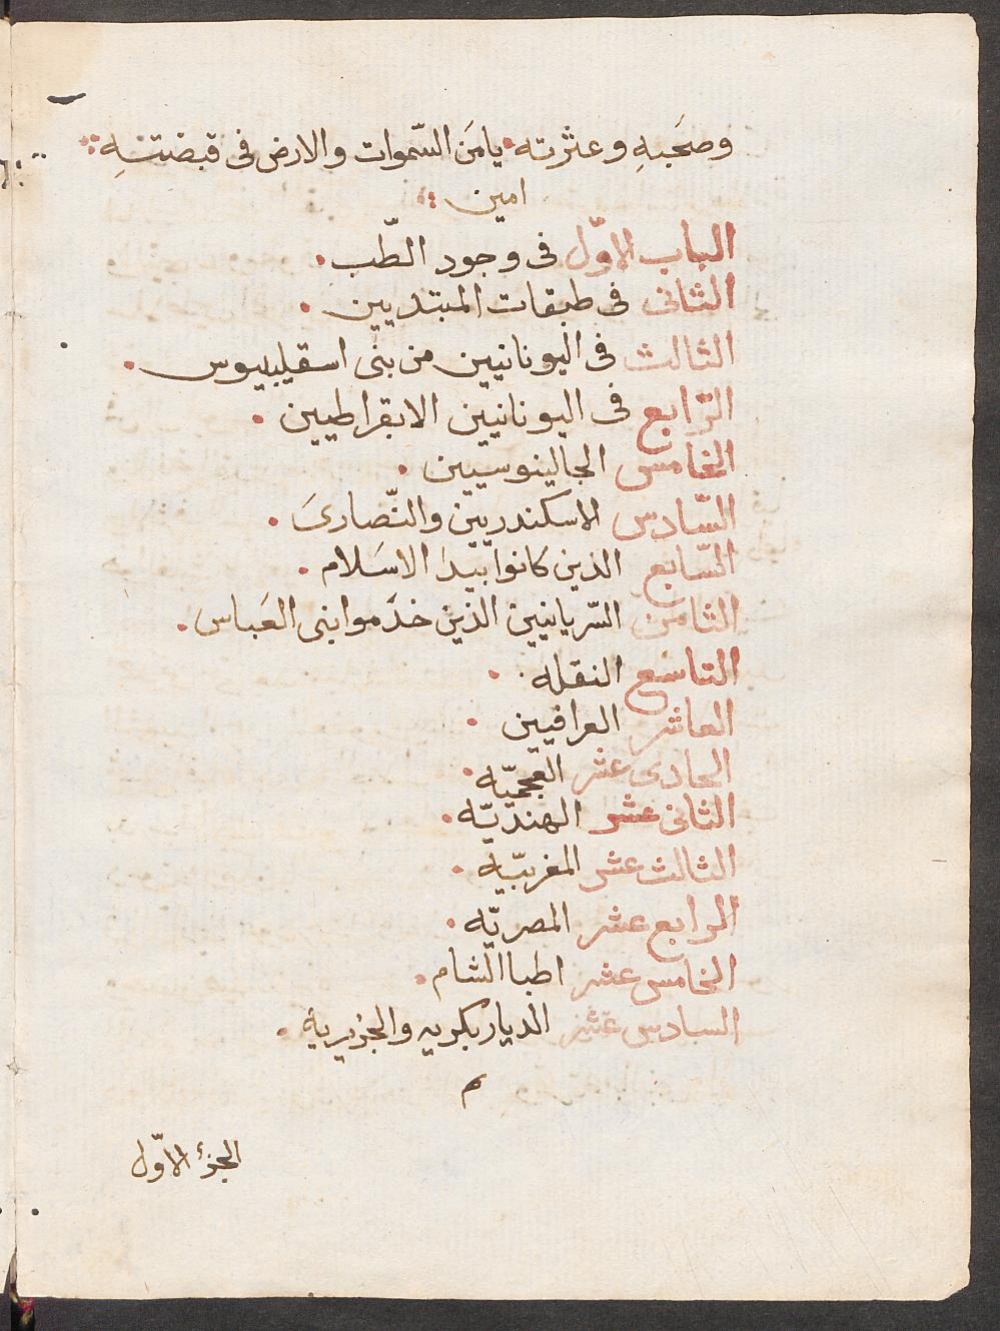 وصَحَبِهِ وعثرته يامَن السّموات والارض فى قبضتِهِ
امين
الباب الاوّل فى وجود الطّب
الثانى فى طبقات المبتديين
الثالث فى اليونانيين من بنى اسقليبيوس
الرّابع فى اليونانيين الابقراطيين
الخامس الجالينوسيين
السّادس الاسكندريين والنّصارىَ
السّابع الذين كانوا بيدا الاسَلام
الثامن السّريانيين الذين خدَموا بنى العَباس
التاسع النقله
العاشر العراقيين
الحادى عشر العجميّه
الثانى عشر الهنديّه
الثالث عشر المغربيّه
الرابع عشر المصريّه
الخامس عشر اطبا الشام
السادس عشر الدياربكريه والجزيرية
م
الجزء الاوّل